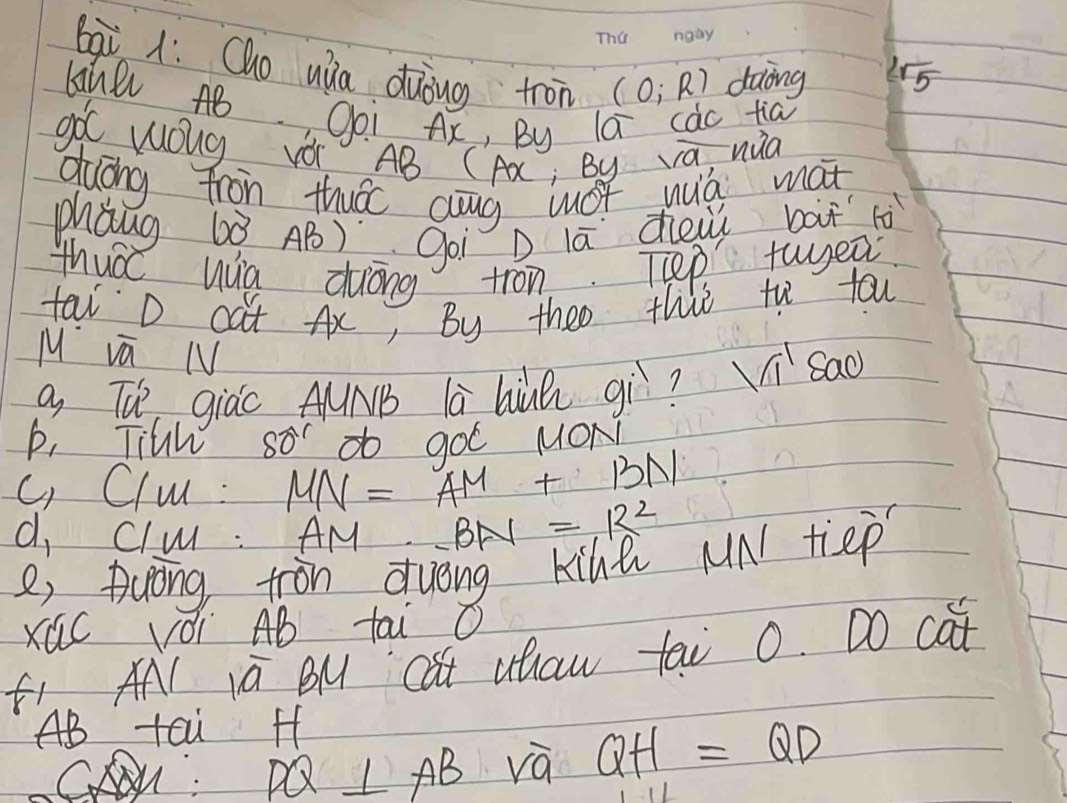 Thứ ngày
Bài 1: Cho nửa đường tròn (O; R) đường
kính AB. Gọi Ax, By là các tia
2√5
góc vuông với AB (Ax; By và nửa
đường tròn thuộc cùng một nửa mặt
phẳng bờ AB). Gọi D là điểm bất kì
thuộc nửa đường tròn. Tiếp tuyến
tại D cắt Ax, By theo thứ tự tại
M và N
a, Tứ giác AMNB là hình gì? Vì sao
b, Tính số đo góc MON
c, C/m: MN = AM + BN
d, C/m: AM . BN = R²
e, Đường tròn đường kính MN tiếp
xúc với AB tại O
f, AN và BM cắt nhau tại O. DO cắt
AB tại H
: DQ ⊥ AB và QH = QD